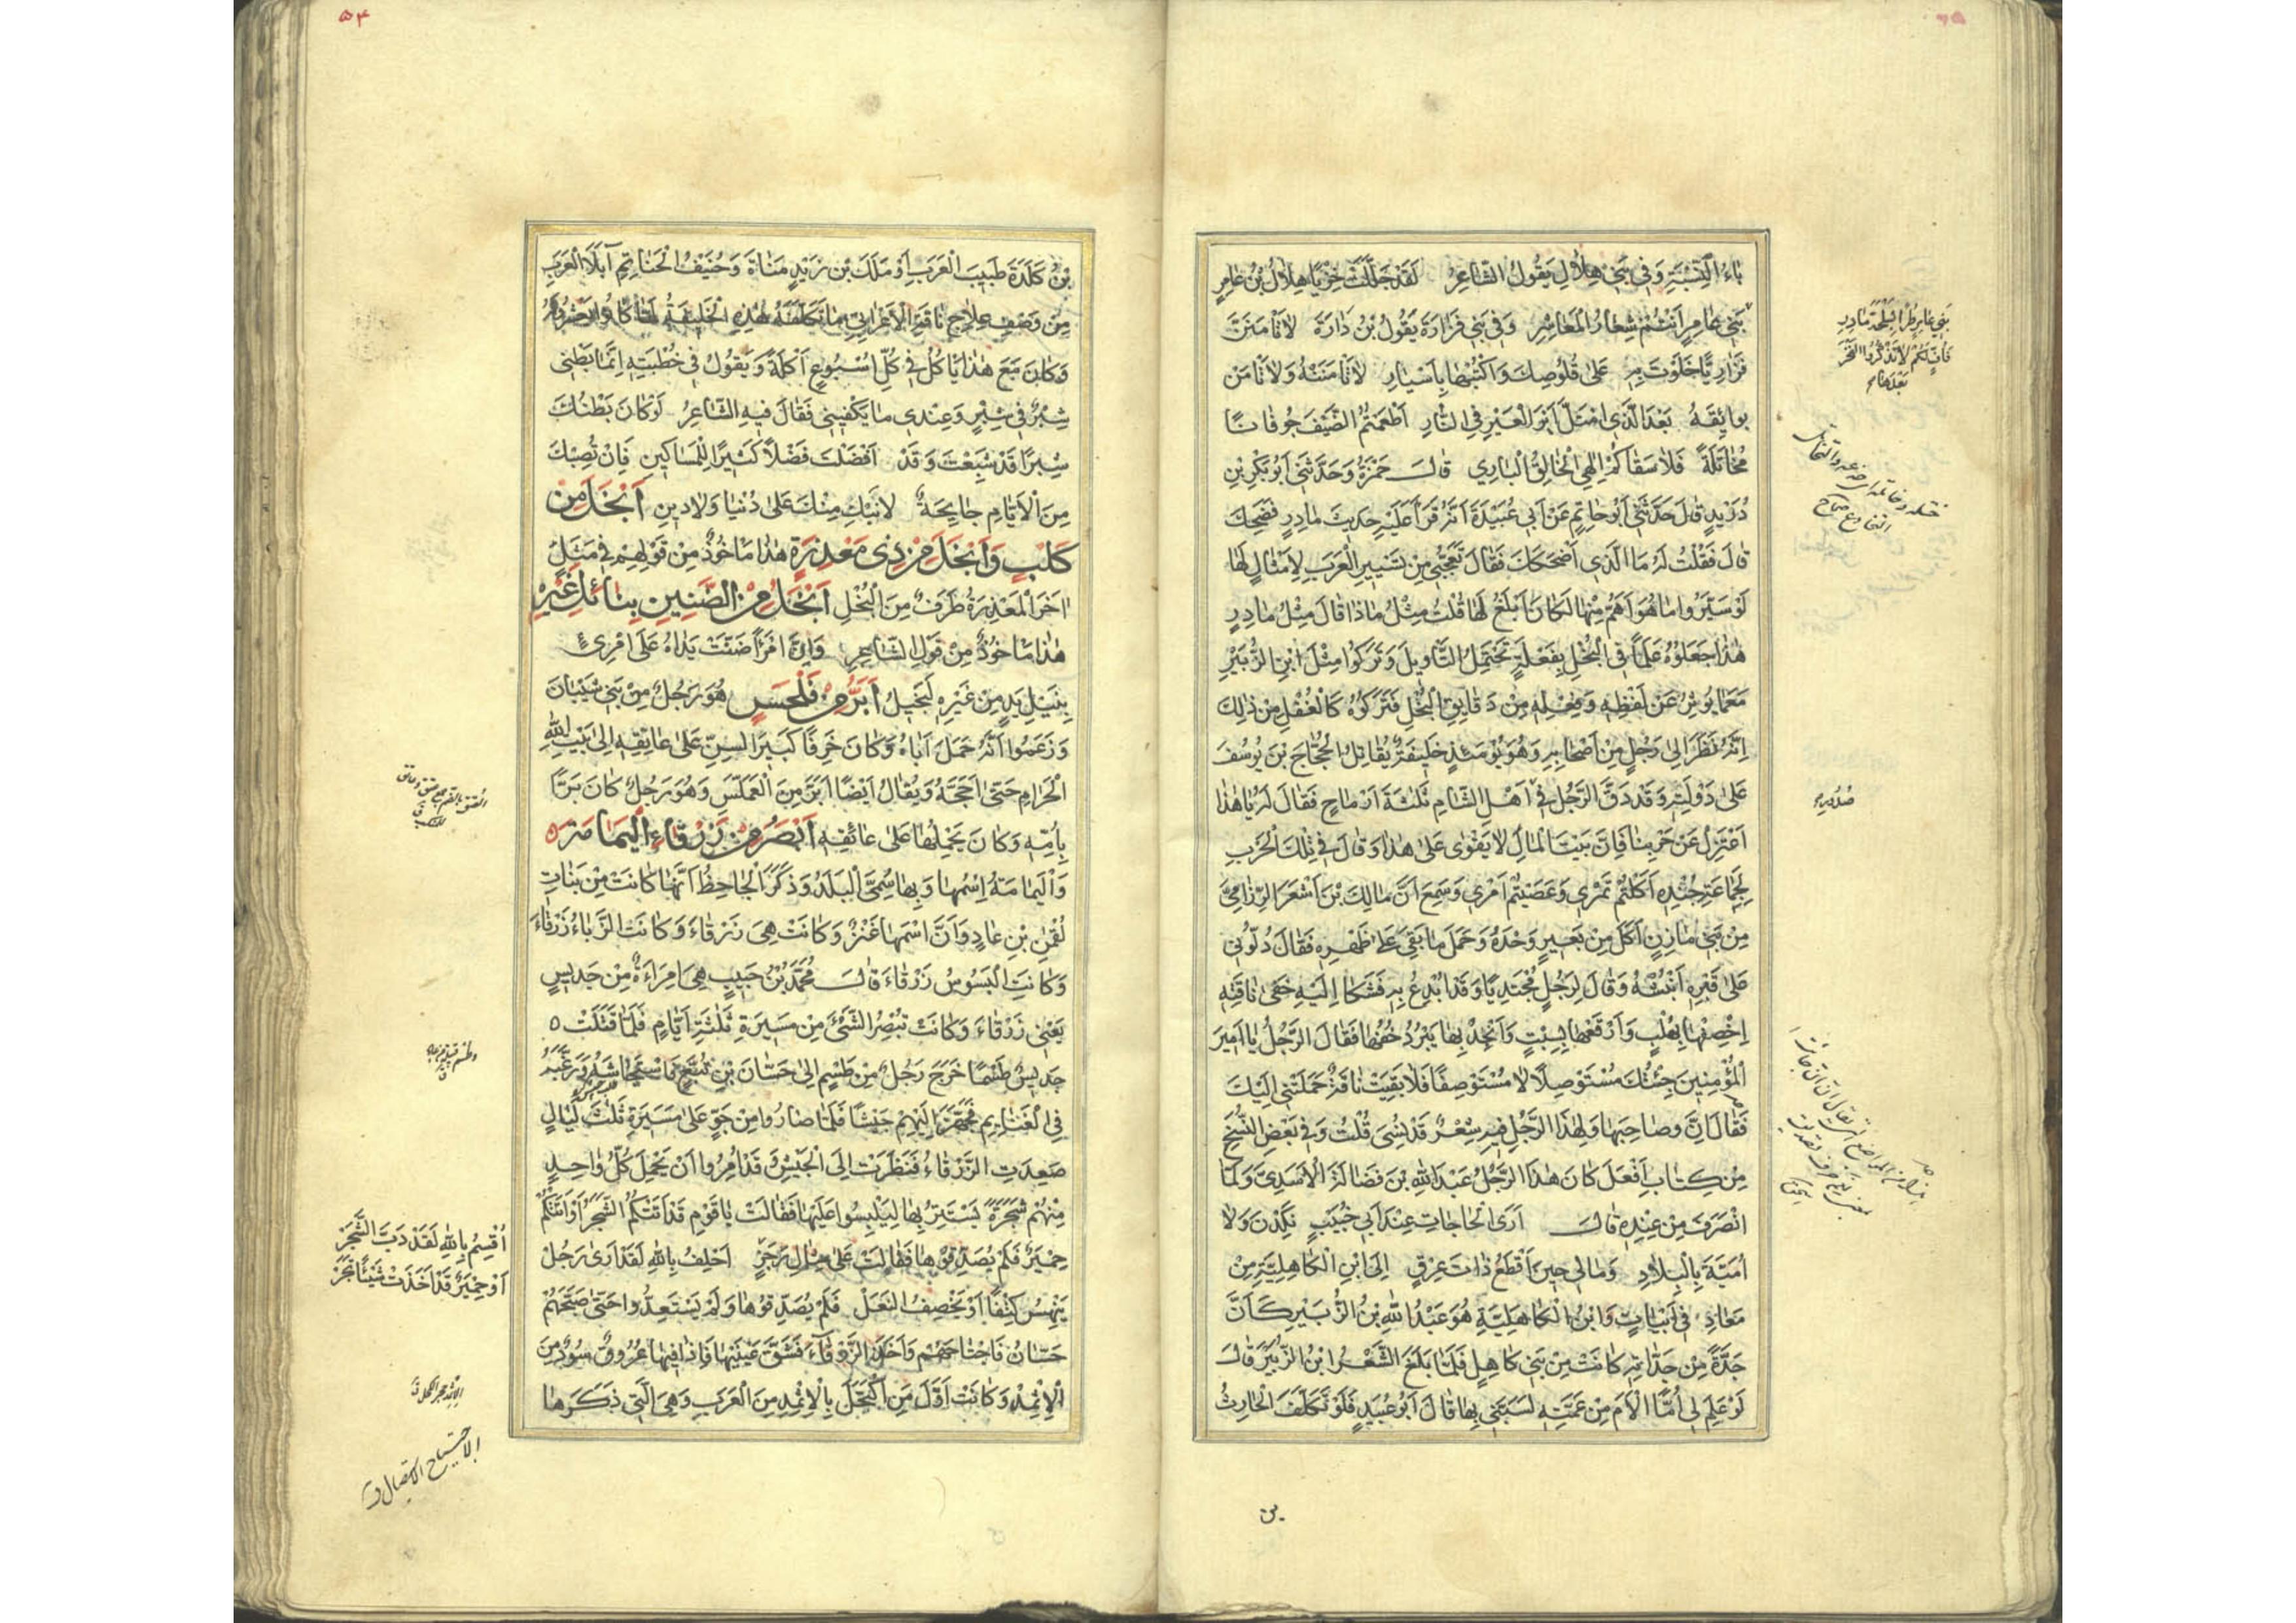 باءُ النِّسْبَةِ وَفِي بَنِي هِلَالٍ يَقُولُ الشَّاعِرُ لَقَدْ جَلَّلَتْ خِزْيًا هِلَالُ بْنُ عَامِرٍ
بَنِي عَامِرٍ أَنْتُمْ شِعَارُ الْمَعَاشِرِ وَفِي بَنِي فَزَارَةَ يَقُولُ بْنُ دَارَةَ لَا تَأْمَنَنَّ
فَزَارِيًّا خَلَوْتَ بِهِ عَلَى قَلُوصِكَ وَاكْتُبْهَا بِأَسْيَارِ لَا تَأْمَنَنْهُ وَلَا تَأْمَنْ
بوائِقَهُ بَعْدَ الَّذِي امْتَلَّ أَيْرَ الْعَيْرِ فِي النَّارِ أَطْعَمْتُمُ الضَّيْفَ جُوفَانًا
مُخَاتَلَةً فَلَا سَقَاكُمْ إِلٰهِي الْخَالِقُ الْبَارِي قَالَ حَمْزَةُ وَحَدَّثَنِي أَبُو بَكْرِ بْنِ
دُرَيْدٍ قَالَ حَدَّثَنِي أَبُو حَاتِمٍ عَنْ أَبِي عُبَيْدَةَ أَنَّهُ قُرَأَ عَلَيْهِ حَدِيثُ مَادِرٍ فَضَحِكَ
قَالَ فَقُلْتُ لَهُ مَا الَّذِي أَضْحَكَكَ فَقَالَ تَعَجُّبِي مِنْ تَسْيِيرِ الْعَرَبِ لِأَمْثَالٍ لَهَا
لَوْ سَيَّرُوا مَا هُوَ أَهَمُّ مِنْهَا لَكَانَ أَبْلَغَ لَهَا قُلْتُ مِثْلُ مَاذَا قَالَ مِثْلُ مَادِرٍ
هٰذَا جَعَلُوهُ عَلَمًا فِي الْبُخْلِ بِفَعْلَةٍ تَحْتَمِلُ التَّأْوِيلَ وَتَرَكُوا مِثْلَ ابْنِ الزُّبَيْرِ
مَعَ مَا يُوثَرُ عَنْ لَفْظِهِ وَفِعْلِهِ مِنْ دَقَايِقِ الْبُخْلِ فَتَرَكُوهُ كَالْغُفْلِ مِنْ ذٰلِكَ
إِنَّهُ نَظَرَ إِلَى رَجُلٍ مِنْ أَصْحَابِهِ وَهُوَ يَوْمَئِذٍ خَلِيفَةٌ يُقَاتِلُ الْحُجَّاجَ بْنَ يُوسُفَ
عَلَى دَوْلَتِهِ وَقَدْ دَقَّ الرَّجُلُ فِي أَهْلِ الشَّامِ ثَلٰثَةَ أَرْمَاحٍ فَقَالَ لَهُ يَا هٰذَا
اعْتَزِلْ عَنْ حَرْبِنَا فَإِنَّ بَيْتَ الْمَالِ لَا يَقْوَى عَلَى هٰذَا وَقَالَ فِي تِلْكَ الْحَرْبِ
لِجَمَاعَةِ جُنْدِهِ أَكَلْتُمْ تَمْرِي وَعَصَيْتُمْ أَمْرِي وَسَمِعَ أَنَّ مَالِكَ بْنَ أَشْعَرَ الرِّزَامِيَّ
مِنْ بَنِي مَازِنٍ أَكَلَ مِنْ بَعِيرٍ وَحْدَهُ وَحَمَلَ مَا بَقِيَ عَلَى ظَهْرِهِ فَقَالَ دُلُّونِي
عَلَى قَبْرِهِ أَنْبُشْهُ وَقَالَ لِرَجُلٍ مُجْتَدِيًا وَقَدْ أُبْدِعَ بِهِ فَشَكَا إِلَيْهِ حَفَى نَاقَتِهِ
اخْصِفْهَا بِهُلْبٍ وَارْقَعْهَا بِسِبْتٍ وَأَنْجِدْ بِهَا يَبْرُدْ خُفُّهَا فَقَالَ الرَّجُلُ يَا أَمِيرَ
الْمُؤْمِنِينَ جِئْتُكَ مُسْتَوْصِلًا لَا مُسْتَوْصِفًا فَلَا بَقِيَتْ نَاقَةٌ حَمَلَتْنِي إِلَيْكَ
فَقَالَ إِنَّ وَصَاحِبَهَا وَلِهٰذَا الرَّجُلِ فِيهِ شِعْرٌ قَدْ نُسِيَ قُلْتُ وَفِي بَعْضِ النُّسَخِ
مِنْ كِتَابِ أَفْعَلَ كَانَ هٰذَا الرَّجُلُ عَبْدَ اللهِ بْنَ فَضَالَةَ الْأَسَدِيَّ وَلَمَّا
انْصَرَفَ مِنْ عِنْدِهِ قَالَ أَرَى الْحَاجَاتِ عِنْدَ أَبِي خُبَيْبٍ نَكِدْنَ وَلَا
أُمَيَّةَ بِالْبِلَادِ وَمَالِي حِينَ أَقْطَعُ ذَاتَ عِرْقٍ إِلَى ابْنِ الْكَاهِلِيَّةِ مِنْ
مَعَادِ فِي أَبْيَاتٍ وَابْنُ الْكَاهِلِيَّةِ هُوَ عَبْدُ اللهِ بْنُ الزُّبَيْرِ كَأَنَّ
جَدَّةً مِنْ جَدَّاتِهِ كَانَتْ مِنْ بَنِي كَاهِلٍ فَلَمَّا بَلَغَ الشِّعْرُ ابْنَ الزُّبَيْرِ قَالَ
لَوْ عَلِمَ لِي أُمًّا الْأَمَ مِنْ عَمَّتِهِ لَسَبَّنِي بِهَا قَالَ أَبُو عُبَيْدٍ فَلَوْ تَكَلَّفَ الْحَارِثُ
بَنِي عَامِرٍ طُرًّا بِسَلْحَةِ مَادِرِ
فَأُفٍّ لَكُمْ لَا تَذْكُرُوا الْفَخْرَ
بَعْدَهَا
بن
۵۴
بْنُ كَلَدَةَ طَبِيبَ الْعَرَبِ أَوْ مَلَكَ بْنَ زَيْدِ مَنَاةَ وَحُنَيْفُ الْحَنَاتِمِ آبَلَا الْعَرَبِ
مِنْ وَصْفِ عِلَاجِ نَاقَةِ الْأَعْرَابِيِّ مَا تَكَلَّفَهُ هٰذِهِ الْخَلِيفَةُ لَمَا كَانُوا
وَكَانَ مَعَ هٰذَا يَأْكُلُ فِي كُلِّ أُسْبُوعٍ أَكْلَةً وَيَقُولُ فِي خُطْبَتِهِ إِنَّمَا بَطْنِي
شِبْرٌ فِي شِبْرٍ وَعِنْدِي مَا يَكْفِينِي فَقَالَ فِيهِ الشَّاعِرُ لَوْ كَانَ بَطْنُكَ
شِبْرًا قَدْ شَبِعْتَ وَقَدْ أَفْضَلْتَ فَضْلًا كَثِيرًا لِلْمَسَاكِينِ فَإِنْ تُصِبْكَ
مِنَ الْأَيَّامِ جَايِحَةٌ لَا نَبْكِ مِنْكَ عَلَى دُنْيَا وَلَا دِينِ أَبْخَلُ مِنْ
كَلْبٍ وَأَبْخَلُ مِنْ ذِي مَعْذِرَةٍ هٰذَا مَأْخُوذٌ مِنْ قَوْلِهِمْ فِي مَثَلٍ
اخَرَ الْمَعْذِرَةُ طَرَفٌ مِنَ الْبُخْلِ أَبْخَلُ مِنَ الضَّنِينِ بِنَائِلِ غَيْرِهِ
هٰذَا مَأْخُوذٌ مِنْ قَوْلِ الشَّاعِرِ وَإِنَّ امْرَأً ضَنَّتْ يَدَاهُ عَلَى امْرِئٍ
بِنَيْلِ يَدٍ مِنْ غَيْرِهِ لَبَخِيلُ أَبَرُّ مِنْ فَلْحَسٍ هُوَ رَجُلٌ مِنْ بَنِي شَيْبَانَ
وَزَعَمُوا أَنَّهُ حَمَلَ أَبَاهُ وَكَانَ خَرِفًا كَبِيرَ السِّنِّ عَلَى عَاتِقِهِ إِلَى بَيْتِ اللهِ
الْحَرَامِ حَتَّى أَحَجَّهُ وَيُقَالُ أَيْضًا أَبَرُّ مِنَ الْعَمَلَّسِ وَهُوَ رَجُلٌ كَانَ بَرًّا
بِأُمِّهِ وَكَانَ يَحْمِلُهَا عَلَى عَاتِقِهِ أَبْصَرُ مِنْ زَرْقَاءِ الْيَمَامَةِ
وَالْيَمَامَةُ اسْمُهَا وَبِهَا سُمِّيَ الْبَلَدُ وَذَكَرَ الْجَاحِظُ أَنَّهَا كَانَتْ مِنْ بَنَاتِ
لُقْمٰنَ بْنِ عَادٍ وَأَنَّ اسْمَهَا عَنْزٌ وَكَانَتْ هِيَ زَرْقَاءَ وَكَانَتِ الزَّبَّاءُ زَرْقَاءَ
وَكَانَتِ الْبَسُوسُ زَرْقَاءَ قَالَ مُحَمَّدُ بْنُ حَبِيبٍ هِيَ امْرَاءَةٌ مِنْ جَدِيسٍ
يَعْنِي زَرْقَاءَ وَكَانَتْ تُبْصِرُ الشَّيْءَ مِنْ مَسِيرَةِ ثَلٰثَةِ أَيَّامٍ فَلَمَّا قَتَلَتْ
جَدِيسٌ طَسْمًا خَرَجَ رَجُلٌ مِنْ طَسْمٍ إِلَى حَسَّانَ بْنِ تُبَّعٍ فَاسْتَجَاشَهُ وَرَغَّبَهُ
فِي الْغَنَايِمِ فَجَهَّزَ إِلَيْهِمْ جَيْشًا فَلَمَّا صَارُوا مِنْ جَوٍّ عَلَى مَسِيرَةِ ثَلٰثِ لَيَالٍ
صَعِدَتِ الزَّرْقَاءُ فَنَظَرَتْ إِلَى الْجَيْشِ وَقَدْ أُمِرُوا أَنْ يَحْمِلَ كُلُّ وَاحِدٍ
مِنْهُمْ شَجَرَةً يَسْتَتِرُ بِهَا لِيَلْبِسُوا عَلَيْهَا فَقَالَتْ يَا قَوْمِ قَدْ أَتَتْكُمُ الشَّجَرُ أَوْ أَتَتْكُمْ
حِمْيَرُ فَلَمْ يُصَدِّقُوهَا فَقَالَتْ عَلَى مِثَالِ رَجَزٍ أَحْلِفُ بِاللهِ لَقَدْ أَرَى رَجُلْ
يَنْهَسُ كَتِفًا أَوْ يَخْصِفُ النَّعَلْ فَلَمْ يُصَدِّقُوهَا وَلَمْ يَسْتَعِدُّوا حَتَّى صَبَّحَهُمْ
حَسَّانُ فَاجْتَاحَهُمْ وَأَخَذَ الزَّرْقَاءَ فَشَقَّ عَيْنَيْهَا فَإِذَا فِيهَا عُرُوقٌ سُودٌ مِنَ
الْإِثْمِدِ وَكَانَتْ أَوَّلَ مَنِ اكْتَحَلَ بِالْإِثْمِدِ مِنَ الْعَرَبِ وَهِيَ الَّتِي ذَكَرَهَا
أُقْسِمُ بِاللهِ لَقَدْ دَبَّ الشَّجَرْ
أَوْ حِمْيَرٌ قَدْ أَخَذَتْ شَيْئًا تَجُرْ
الإثمد حجر الكحل ق
الاجتياح الاستيصال